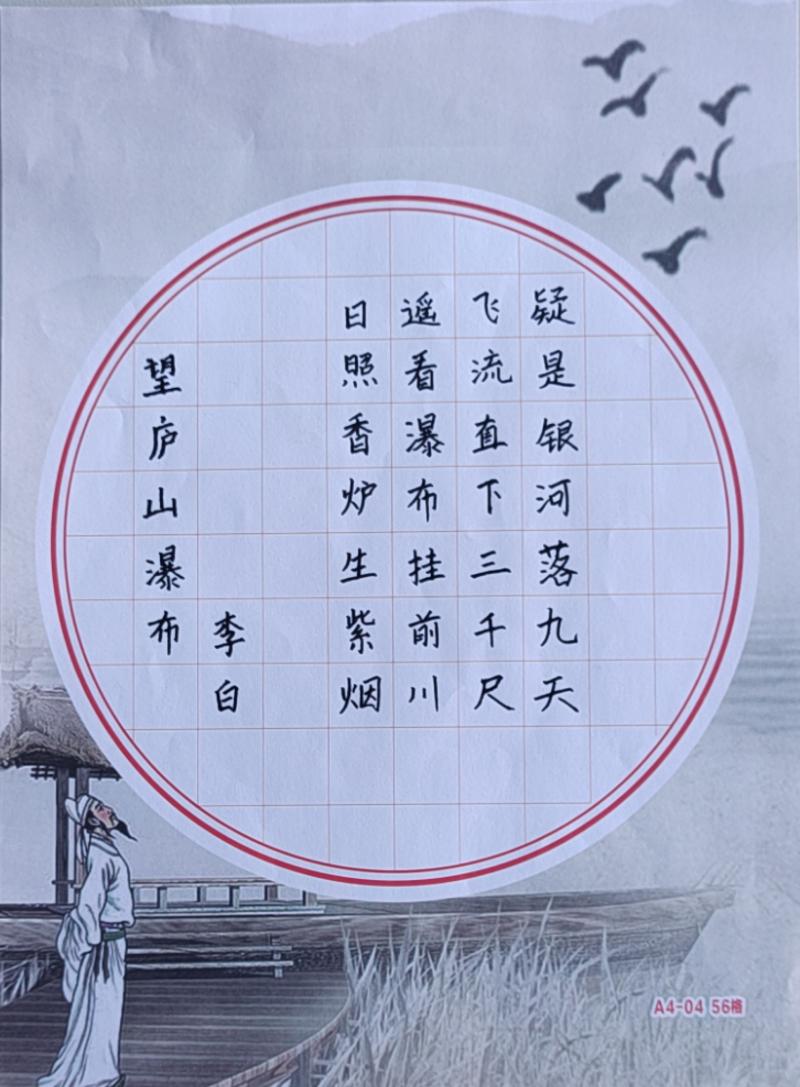 望庐山瀑布
李白
日照香炉生紫烟
遥看瀑布挂前川
飞流直下三千尺
疑是银河落九天
A4-04 56格